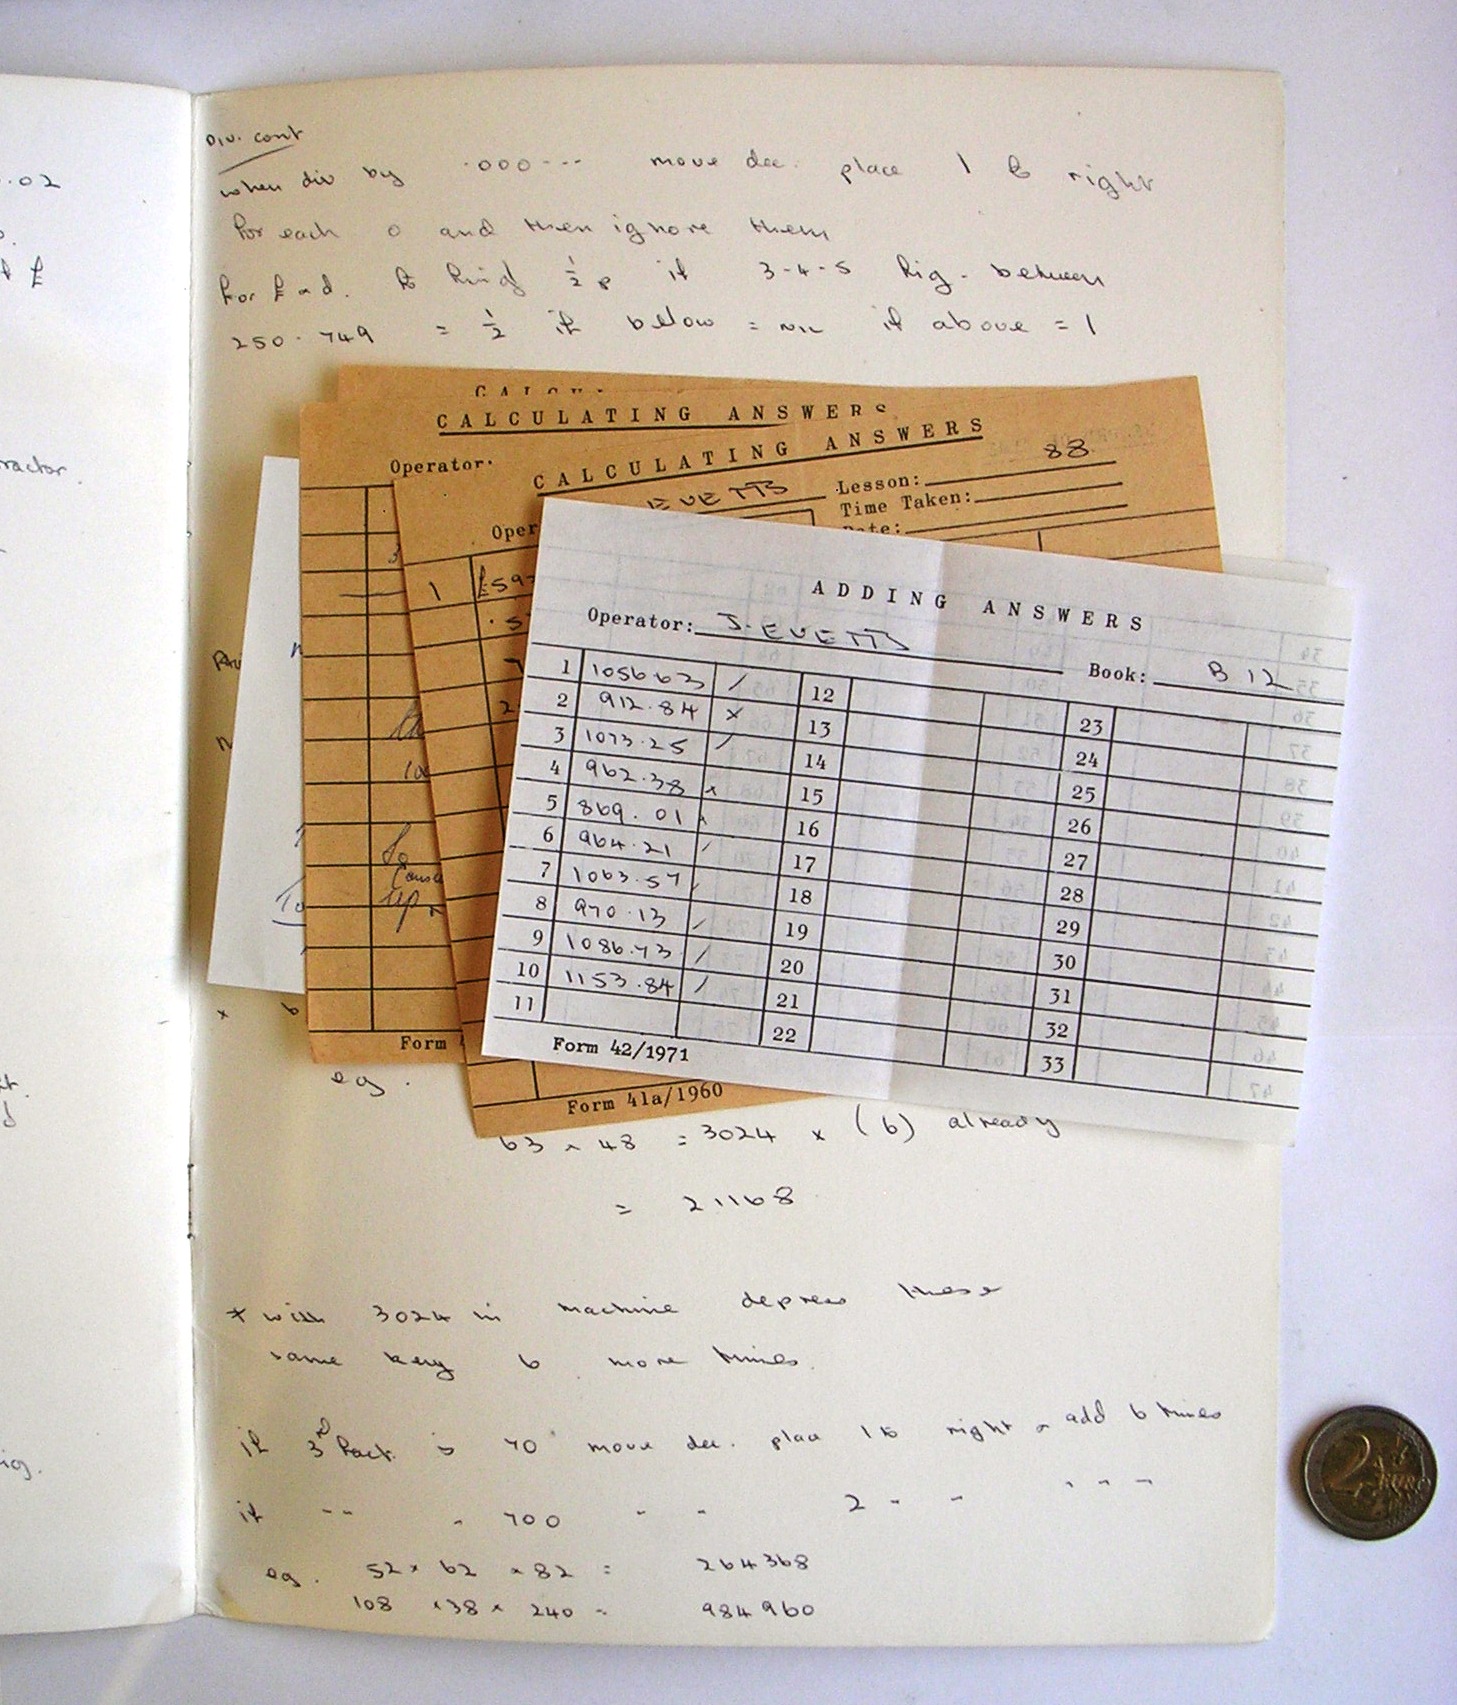 .02
£
ractor.
ig.
Div. cont
when div by .000--- move dec. place 1 to right
for each 0 and then ignore them
For £ and. to find ½ p if 3-4-5 fig. between
250-749 = ½ if below = NIL if above = 1
CALCULATING ANSWERS
Operator:
CALCULATING ANSWERS
EVETTS
Lesson: 88
Time Taken:
Date:
Oper
1 £59
ADDING ANSWERS
Operator: J. EVETTS
Book: B 12
1 1056 63 / 12 23
2 912.84 x 13 24
3 1073.25 / 14 25
4 962.38 x 15 26
5 869.01 x 16 27
6 964.21 / 17 28
7 1063.57 / 18 29
8 970.13 / 19 30
9 1086.73 / 20 31
10 1153.84 / 21 32
11 22 33
Form 42/1971
Form
Form 41a/1960
eg.
63 x 48 = 3024 x (6) already
= 21168
* with 3024 in machine depress these
same key 6 more times.
if 3rd fact. is 70 move dec. place 1 to right & add 6 times
if -- " 700 " " 2 " " " " "
eg. 52 x 62 x 82 = 264368
108 x 38 x 240 = 984960